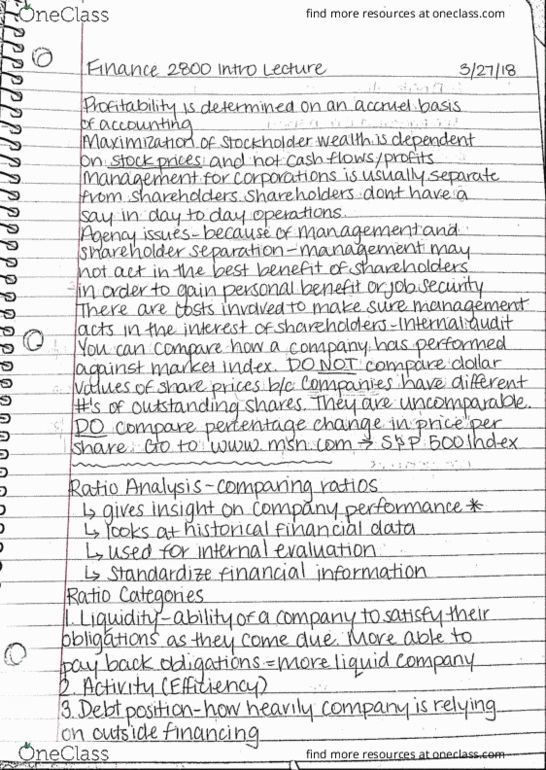 OneClass
find more resources at oneclass.com
Finance 2800 Intro Lecture 3/27/18
Profitability is determined on an accruel basis
of accounting
Maximization of stockholder wealth is dependent
on stock prices and not cash flows/profits
Management for corporations is usually separate
from shareholders. Shareholders dont have a
say in day to day operations.
Agency issues-because of management and
shareholder separation-management may
not act in the best benefit of shareholders
in order to gain personal benefit or job security
There are costs involved to make sure management
acts in the interest of shareholders-Internal audit
You can compare how a company has performed
against market index. DO NOT compare dollar
values of share prices b/c companies have different
#'s of outstanding shares. They are uncomparable.
DO compare percentage change in price per
share. Go to www.msn.com → S&P 500 Index
Ratio Analysis-comparing ratios
↳ gives insight on company performance *
↳ looks at historical financial data
↳ used for internal evaluation
↳ Standardize financial information
Ratio Categories
1. Liquidity-ability of a company to satisfy their
obligations as they come due. More able to
pay back obligations = more liquid company
2. Activity (Efficiency)
3. Debt position-how heavily company is relying
on outside financing
OneClass
find more resources at oneclass.com